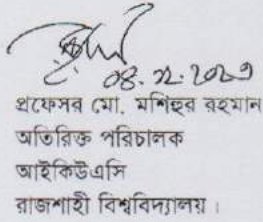 ০৪.১২.২০২৩
প্রফেসর মো. মশিহুর রহমান
অতিরিক্ত পরিচালক
আইকিউএসি
রাজশাহী বিশ্ববিদ্যালয়।